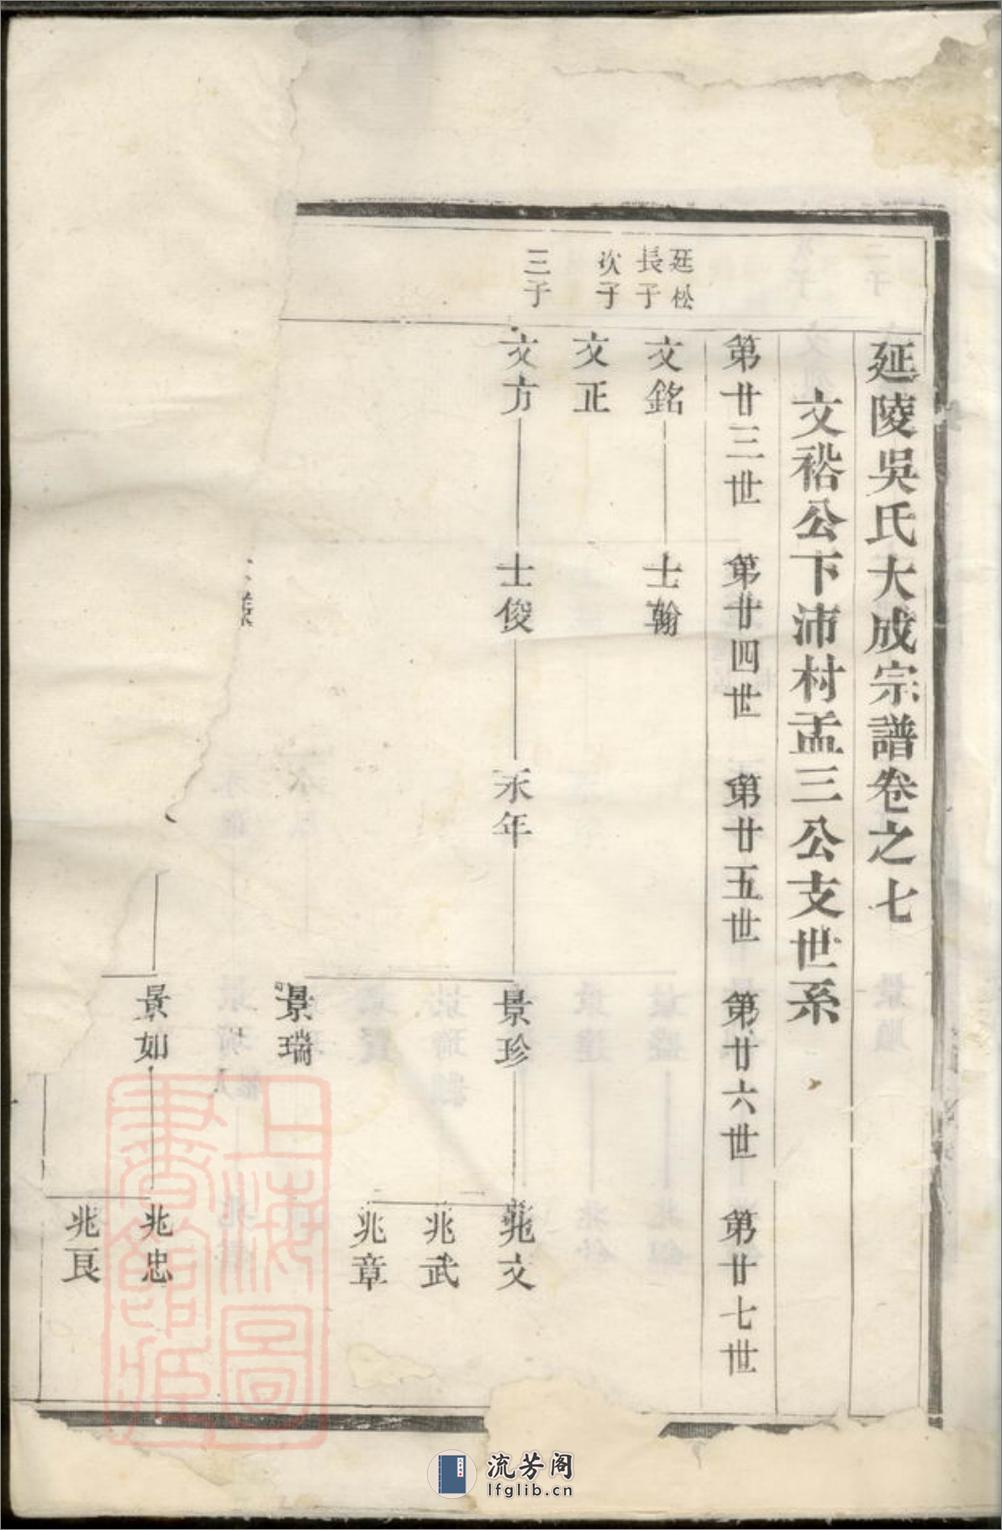 延陵吳氏大成宗譜卷之七
文裕公下沛村孟三公支世系
第廿三世 第廿四世 第廿五世 第廿六世 第廿七世
廷松
長子 文銘 士翰
次子 文正
三子 文方 士俊 永年 景珍 兆文
兆武
兆章
景瑞
景如 兆忠
兆良
上海圖書館藏
流芳阁
lfglib.cn